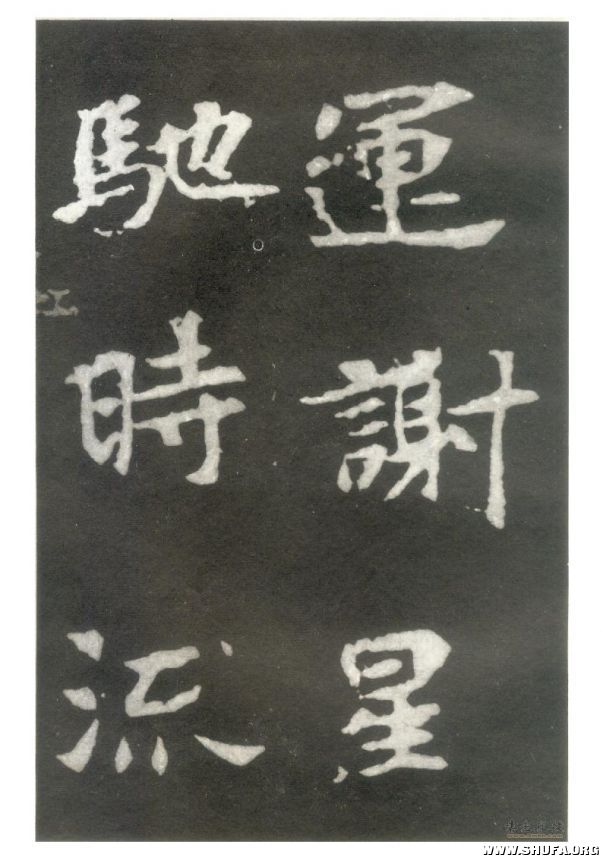 運謝星
馳時流
WWW.SHUFA.ORG